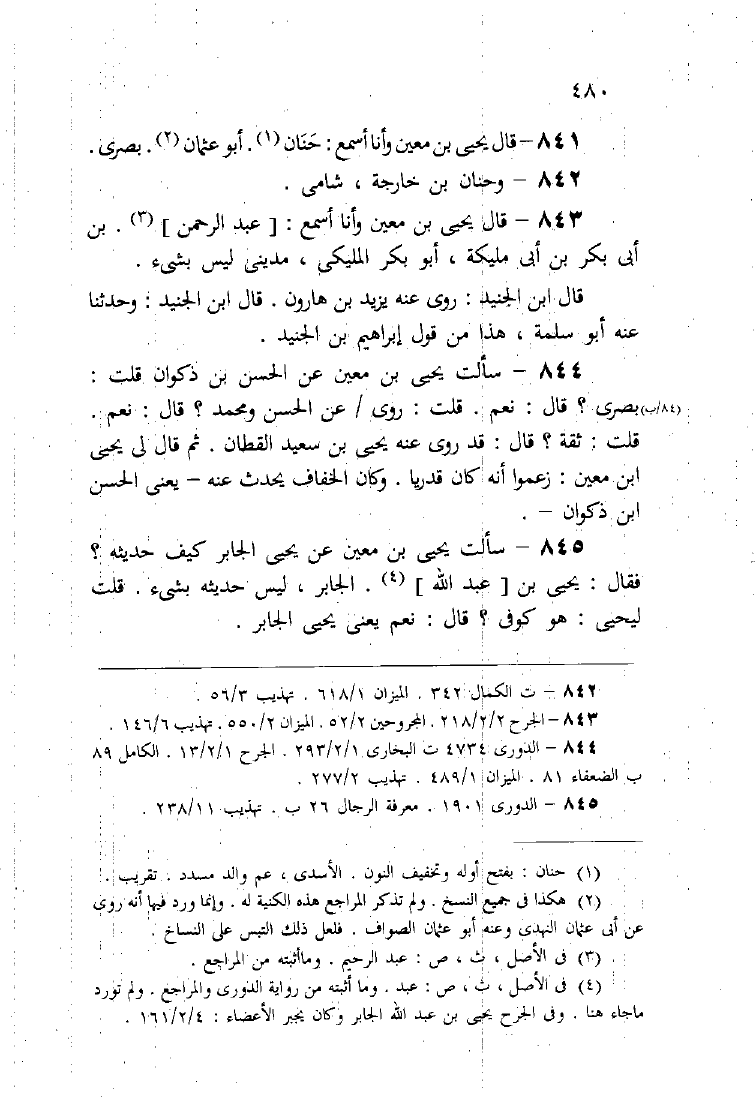 ٤٨٠
٨٤١ – قال يحيى بن معين وأنا أسمع : حَنَان (١) . أبو عثمان (٢) . بصرى .
٨٤٢ – وحنان بن خارجة ، شامى .
٨٤٣ – قال يحيى بن معين وأنا أسمع : [ عبد الرحمن ] (٣) . بن
أبى بكر بن أبى مليكة ، أبو بكر المليكى ، مدينى ليس بشىء .
قال ابن الجنيد : روى عنه يزيد بن هارون . قال ابن الجنيد : وحدثنا
عنه أبو سلمة ، هذا من قول إبراهيم بن الجنيد .
٨٤٤ – سألت يحيى بن معين عن الحسن بن ذكوان قلت :
(٨٤/ب) بصرى ؟ قال : نعم . قلت : روى / عن الحسن ومحمد ؟ قال : نعم .
قلت : ثقة ؟ قال : قد روى عنه يحيى بن سعيد القطان . ثم قال لى يحيى
ابن معين : زعموا أنه كان قدريا . وكان الخفاف يحدث عنه – يعنى الحسن
ابن ذكوان – .
٨٤٥ – سألت يحيى بن معين عن يحيى الجابر كيف حديثه ؟
فقال : يحيى بن [ عبد الله ] (٤) . الجابر ، ليس حديثه بشىء . قلت
ليحيى : هو كوفى ؟ قال : نعم يعنى يحيى الجابر .
٨٤٢ – ت الكمال ٣٤٢ . الميزان ٦١٨/١ . تهذيب ٥٦/٣ .
٨٤٣ – الجرح ٢١٨/٢/٢ . المجروحين ٥٢/٢ . الميزان ٥٥٠/٢ . تهذيب ١٤٦/٦ .
٨٤٤ – الدورى ٤٧٣٤ ت البخارى ٢٩٣/٢/١ . الجرح ١٣/٢/١ . الكامل ٨٩
ب الضعفاء ٨١ . الميزان ٤٨٩/١ . تهذيب ٢٧٧/٢ .
٨٤٥ – الدورى ١٩٠١ . معرفة الرجال ٢٦ ب . تهذيب ٢٣٨/١١ .
(١) حنان : بفتح أوله وتخفيف النون . الأسدى ، عم والد مسدد . تقريب .
(٢) هكذا فى جميع النسخ . ولم تذكر المراجع هذه الكنية له . وإنما ورد فيها أنه روى
عن أبى عثمان النهدى وعنه أبو عثمان الصواف . فلعل ذلك التبس على النساخ .
(٣) فى الأصل ، ث ، ص : عبد الرحيم . وماأثبته من المراجع .
(٤) فى الأصل ، ث ، ص : عبد . وما أثبته من رواية الدورى والمراجع . ولم تورد
ماجاء هنا . وفى الجرح يحيى بن عبد الله الجابر وكان يجبر الأعضاء : ١٦١/٢/٤ .